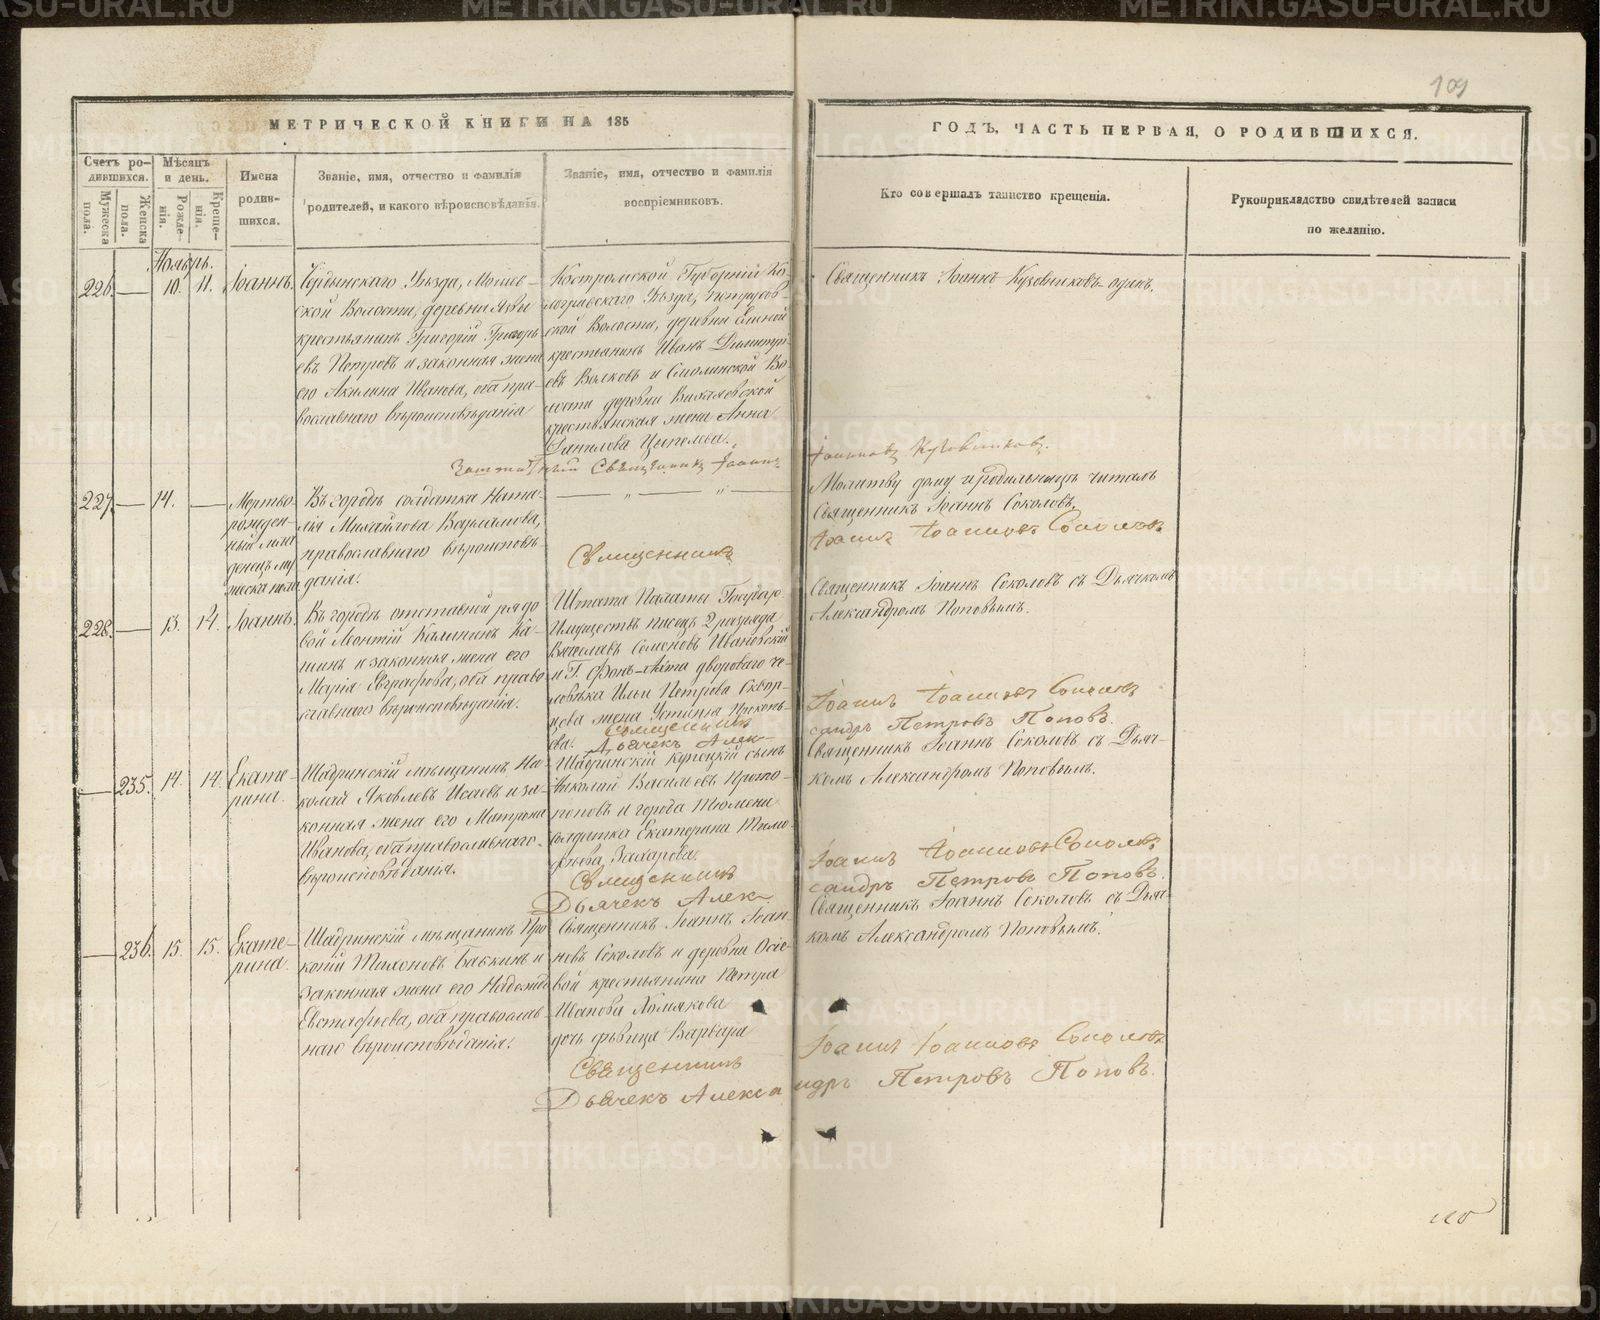 109
МЕТРИЧЕСКОЙ КНИГИ НА 185
ГОДЪ, ЧАСТЬ ПЕРВАЯ, О РОДИВШИХСЯ.
Счетъ ро-
дившихся.
Мужеска
пола.
Женска
пола.
Мѣсяцъ
и день.
Рожде-
нія.
Креще-
нія.
Имена
родив-
шихся.
Званіе, имя, отчество и фамилія
родителей, и какого вѣроисповѣданія.
Званіе, имя, отчество и фамилія
воспріемниковъ.
Кто совершалъ таинство крещенія.
Рукоприкладство свидѣтелей записи
по желанію.
Ноябрь.
226. — 10. 11. Іоаннъ.
Чердынскаго Уѣзда,
ской Волости, деревни
крестьянинъ Григорій Григорь
евъ Петровъ и законная жена
его Акилина Иванова, оба пра-
вославнаго вѣроисповѣданія
Костромской Губерніи Ко-
логривскаго Уѣзда,
ской Волости, деревни
крестьянинъ Иванъ Димитрі-
евъ Волковъ и Смолинской Во-
лости деревни
крестьянская жена Анна
Данилова
Священникъ Іоаннъ Кузовниковъ одинъ.
Заштатный Священникъ Іоаннъ
Іоанновъ Кузовниковъ.
227. — 14. —
Мертво-
рожден-
ный мла
денецъ му
жеска пола
Въ городѣ солдатка Ната-
лія Михайлова Варламова,
православнаго вѣроисповѣ-
данія.
— „ — „ —
Молитву дому и родильницѣ читалъ
Священникъ Іоаннъ Соколовъ.
Священникъ
Іоаннъ Іоанновъ Соколовъ
228. — 13. 14. Іоаннъ.
Въ городѣ отставной рядо
вой Леонтій Калининъ Ка-
шинъ и законная жена его
Марія Евграфова, оба право
славнаго вѣроисповѣданія.
Штата Палаты Государ.
Имуществъ писецъ 2 разряда
Семеновъ Ивановскій
и Г. Фонъ-Аста двороваго че-
ловѣка Ильи Петрова Сквор-
цова жена Устинья Прокопь-
ева.
Священникъ Іоаннъ Соколовъ съ Дьячкомъ
Александромъ Поповымъ.
Священникъ
Дьячекъ Алек-
Іоаннъ Іоанновъ Соколовъ
сандръ Петровъ Поповъ.
— 235. 14. 14. Екате-
рина.
Шадринскій мѣщанинъ Ни
колай Яковлевъ Исаевъ и за-
конная жена его Матрона
Иванова, оба православнаго
вѣроисповѣданія.
Шадринскій купецкій сынъ
Николай Васильевъ Прото-
поповъ и города Тюмени
солдатка Екатерина Тимо-
фѣева Захарова.
Священникъ Іоаннъ Соколовъ съ Дьяч-
комъ Александромъ Поповымъ.
Священникъ
Дьячекъ Алек-
Іоаннъ Іоанновъ Соколовъ
сандръ Петровъ Поповъ.
— 236. 15. 15. Екате-
рина.
Шадринскій мѣщанинъ Про
копій Тихоновъ Бабкинъ и
законная жена его Надежда
Евстафьева, оба православ-
наго вѣроисповѣданія.
Священникъ Іоаннъ Іоан-
новъ Соколовъ и деревни Осѣе-
вой крестьянина Петра
Иванова Хомякова
дочь дѣвица Варвара
Священникъ Іоаннъ Соколовъ съ Дьяч-
комъ Александромъ Поповымъ.
Священникъ
Дьячекъ Алекса
Іоаннъ Іоанновъ Соколовъ
ндръ Петровъ Поповъ.
METRIKI.GASO-URAL.RU